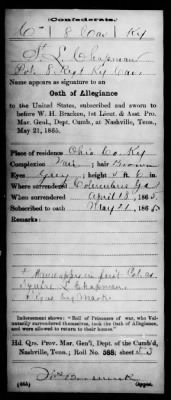 (Confederate.)
C | 8 Cav | Ky
S. L. Chapman
Pvt. 8 Regt Ky Cav
Name appears as signature to an
Oath of Allegiance
to the United States, subscribed and sworn to
before W. H. Bracken, 1st Lieut. & Asst. Pro.
Mar. Genl., Dept. Cumb., at Nashville, Tenn.,
May 21, 1865.
Place of residence Ohio Co. Ky
Complexion Fair ; hair Brown
Eyes Grey ; 5 ft. 6 in.
Where surrendered Columbus Ga
When surrendered April 18, 1865.
Subscribed to oath May 21, 1865
Remarks:
Squire L. Chapman
Signs by Mark
Indorsement shows: "Roll of Prisoners of war, who Vol-
untarily surrendered themselves, took the Oath of Allegiance,
and were allowed to return to their homes."
Hd. Qrs. Prov. Mar. Gen'l, Dept. of the Cumb'd,
Nashville, Tenn.; Roll No. 388; sheet 53
Copyist.